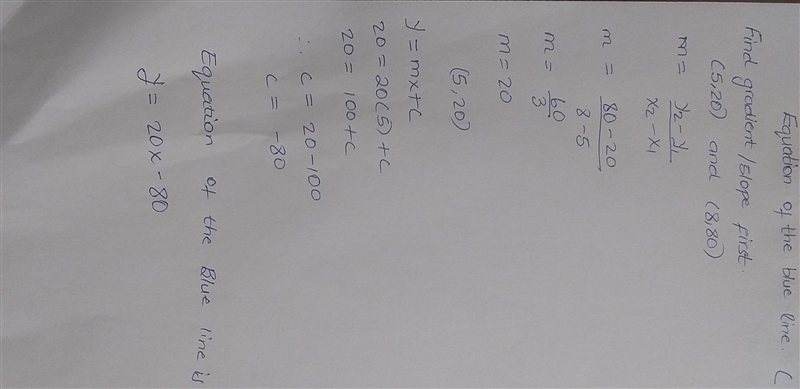 Equation of the blue line. (
Find gradient/slope first.
(5,20) and (8,80)
m = y₂ - y₁ / x₂ - x₁
m = 80 - 20 / 8 - 5
m = 60 / 3
m = 20
(5, 20)
y = mx + c
20 = 20(5) + c
20 = 100 + c
∴ c = 20 - 100
c = -80
Equation of the Blue line is
y = 20x - 80